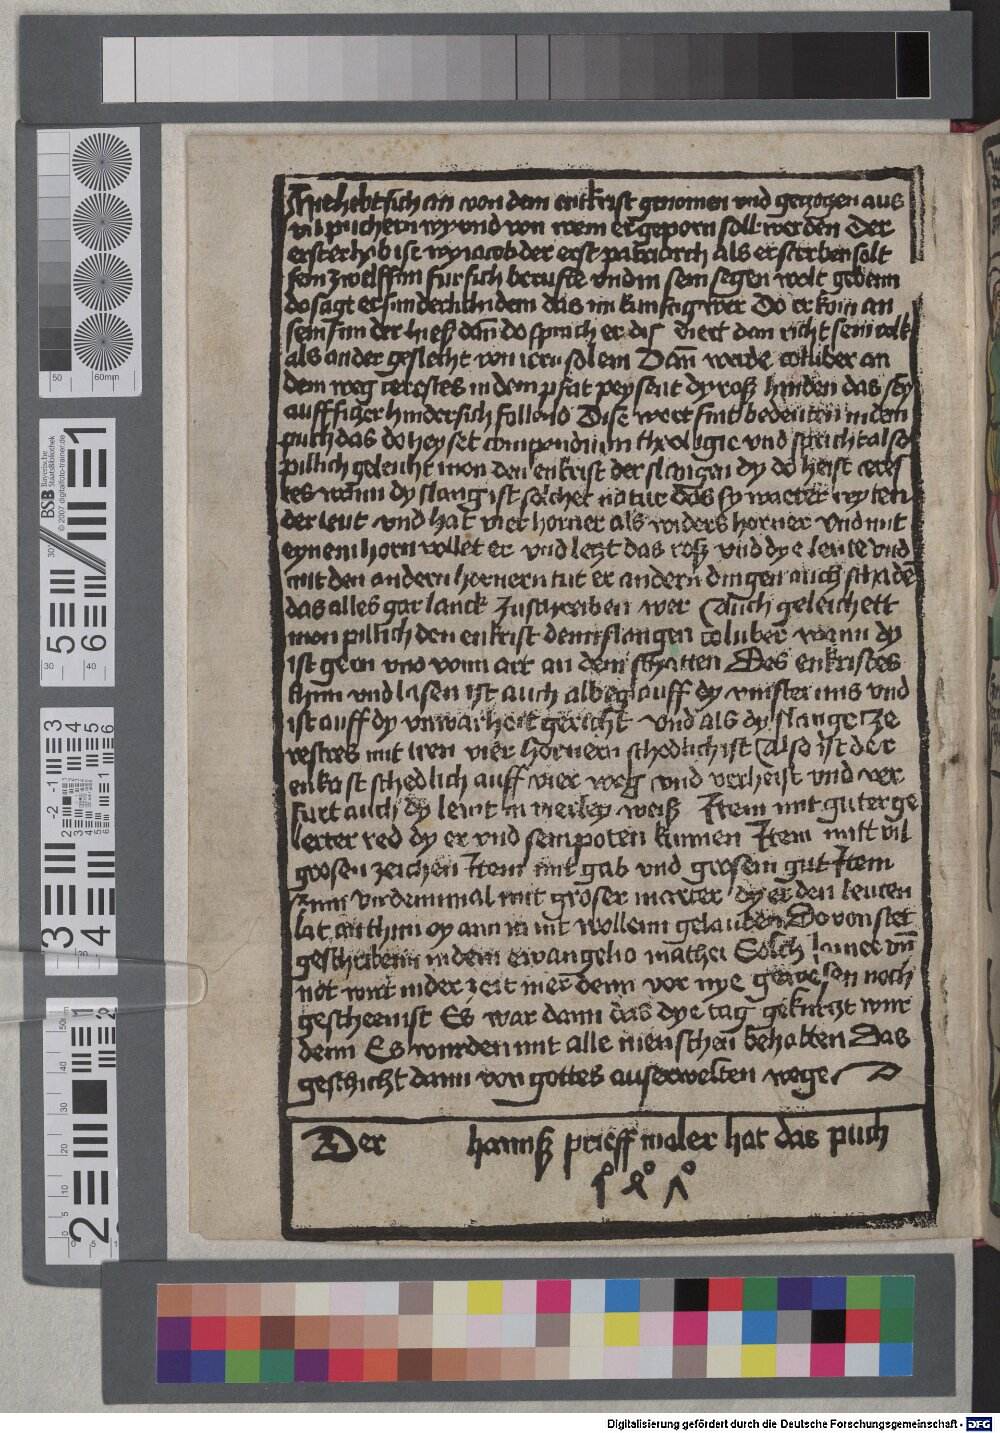 Hie hebt sich an von dem entkrist genomen und gezogen aus
vil puchern wy und von wem er geporn soll werden Der
erster hab ist wy iacob der erst patriarch als er sterben solt
sein zwelff sun fur sich beruffte und in sein segen wolt geben
do sagt er sunderlich idem das im kunftig wer Do er kom an
sein sun der hieß dan do sprach er dis wert dan richt sein volk
als ander geslecht von ierusolem Dan werde colliber an
dem weg cerostes in dem pfat peyseut dy roß hinden das sey
auffsitzer hindersich follend Dise wort sint bedeuten in dem
puch das do heyset compendium theoligie und spricht also
pillich geleicht mon den enkrist der slangen dy do heist ceros
tes wann dy slang ist solcher natur das sy warter
der leut und hat vier horner als widers horner Und mit
eynem horn vellet er und letzt das roß und dye leute und
mit den andern hornern tut er andern dingen auch schaden
das alles gar lanck zuschreiben wer Auch geleichett
mon pillich den enkrist dem slangen coluber wann dy
ist gern und vonn art an dem schatten Des enkristes
thun und lasen ist auch albeg auff dy vinsternus und
ist auff dy unwarheit gericht und als dy slange ce
restes mit iren vier hornern schedlich ist Also ist der
enkrist schedlich auff vier weg und verheist und ver
furt auch dy leut in vierley weiß Item mit guter ge
lerter red dy er und sein poten kunnen Item mitt vil
grosen zeichen Item mit gab und grosem gut Item
zum virdenmal mit groser marter dy er den leuten
lat anthun dy ann in nit wollenn gelauben Dovon stet
geschriben in dem ewangelio mathei Solch iamer vnd
not wirt in der zeit mer denn vor nye gewesen noch
gescheen ist Es war dann das dye tag gekurtzt wur
denn Es wurden nit alle menschen behalten Das
geschicht dann von gottes auserwelten wegen
Der hannß prieff maler hat das puch
1 4 7
BSB Bayerische StaatsBibliothek
© 2007 digitalfoto-trainer.de
Digitalisierung gefördert durch die Deutsche Forschungsgemeinschaft - DFG